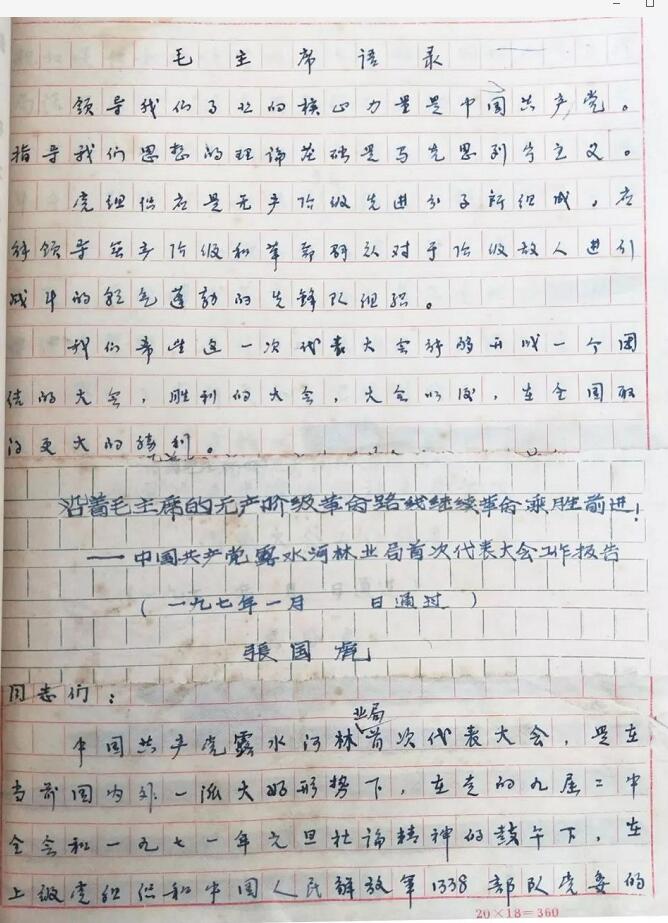 毛主席语录
领导我们事业的核心力量是中国共产党。
指导我们思想的理论基础是马克思列宁主义。
党组织应是无产阶级先进分子所组成，应
能领导无产阶级和革命群众对于阶级敌人进行
战斗的朝气蓬勃的先锋队组织。
我们希望这一次代表大会能够开成一个团
结的大会，胜利的大会，大会以后，在全国取
得更大的胜利。
沿着毛主席的无产阶级革命路线继续革命乘胜前进！
——中国共产党露水河林业局首次代表大会工作报告
（一九七年一月 日通过）
張国彪
同志们：
中国共产党露水河林业局首次代表大会，是在
当前国内外一派大好形势下，在党的九届二中
全会和一九七一年元旦社论精神的鼓午下，在
上级党组织和中国人民解放军1338部队党委的
20×18=360